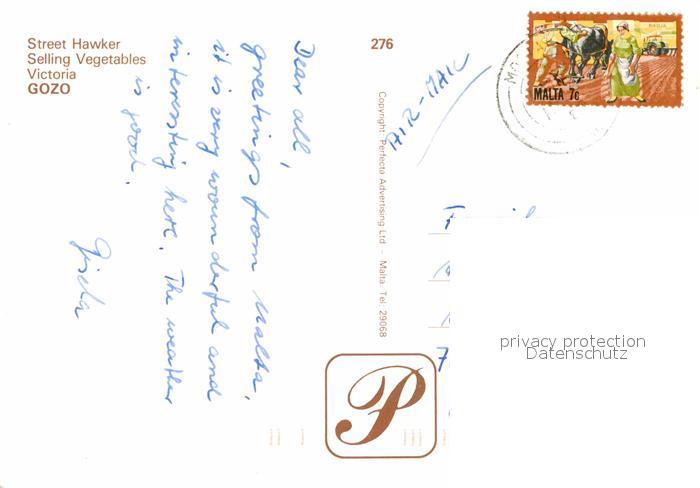 Street Hawker
Selling Vegetables
Victoria
GOZO
276
Dear all,
greetings from Malta,
it is very wounderful and
interessting here. The weather
is good.
Gisela
Copyright Perfecta Advertising Ltd - Malta. Tel: 29068
AIR-MAIL
MALTA 7c
P
privacy protection
Datenschutz